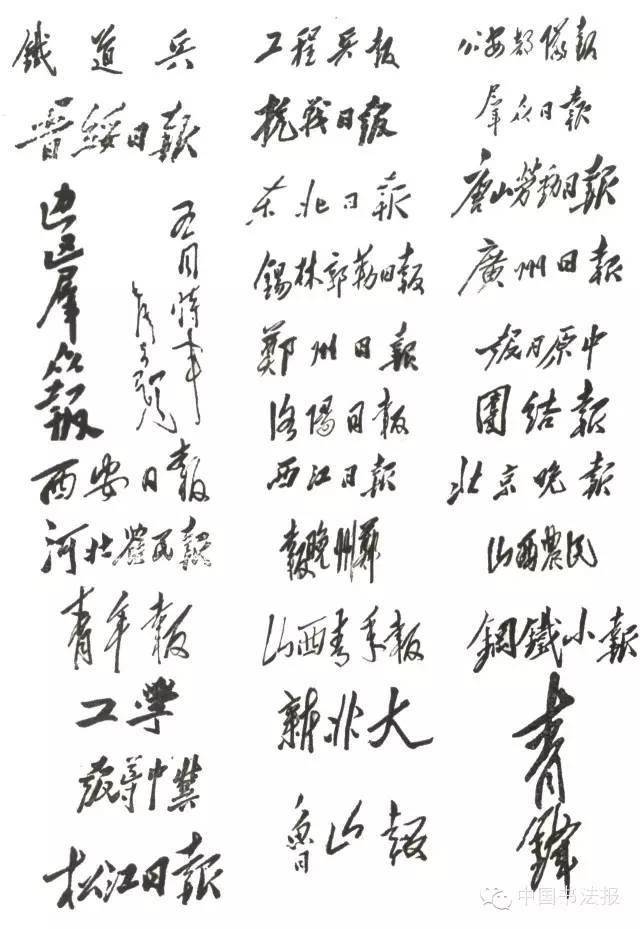 鐵道兵
晋綏日報
边区羣众報
西安日報
河北農民報
青年報
工學
冀中導報
松江日報
工程兵報
抗战日報
东北日報
錫林郭勒日報
鄭州日報
洛陽日報
西江日報
鄭州晚報
山西青年報
新北大
魯山報
公安部隊報
羣众日報
唐山劳動日報
廣州日報
中原日報
團结報
北京晚報
山西農民
鋼鐵小報
青鋒
中国书法报